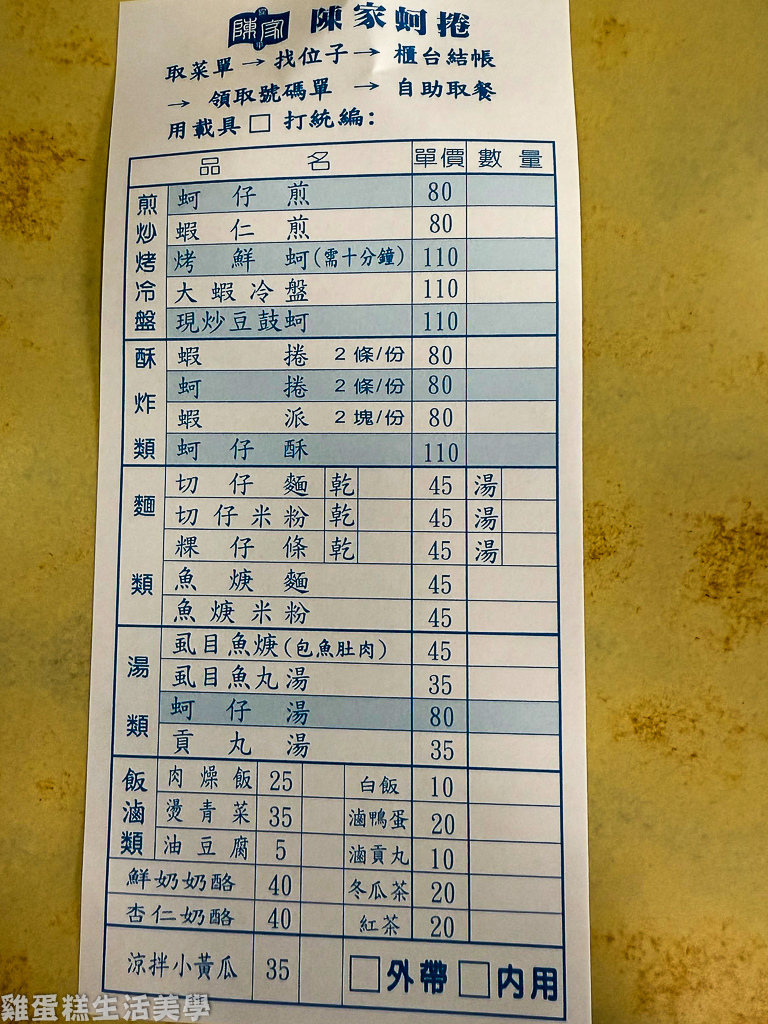 陳家 陳家蚵捲
取菜單→找位子→櫃台結帳
→領取號碼單→自助取餐
用載具□打統編：
品名 單價 數量
煎炒烤冷盤
蚵仔煎 80
蝦仁煎 80
烤鮮蚵(需十分鐘) 110
大蝦冷盤 110
現炒豆鼓蚵 110
酥炸類
蝦捲 2條/份 80
蚵捲 2條/份 80
蝦派 2塊/份 80
蚵仔酥 110
麵類
切仔麵 乾 45 湯
切仔米粉 乾 45 湯
粿仔條 乾 45 湯
魚焿麵 45
魚焿米粉 45
湯類
虱目魚焿(包魚肚肉) 45
虱目魚丸湯 35
蚵仔湯 80
貢丸湯 35
飯滷類
肉燥飯 25 白飯 10
燙青菜 35 滷鴨蛋 20
油豆腐 5 滷貢丸 10
鮮奶奶酪 40 冬瓜茶 20
杏仁奶酪 40 紅茶 20
涼拌小黃瓜 35 □外帶□內用
雞蛋糕生活美學